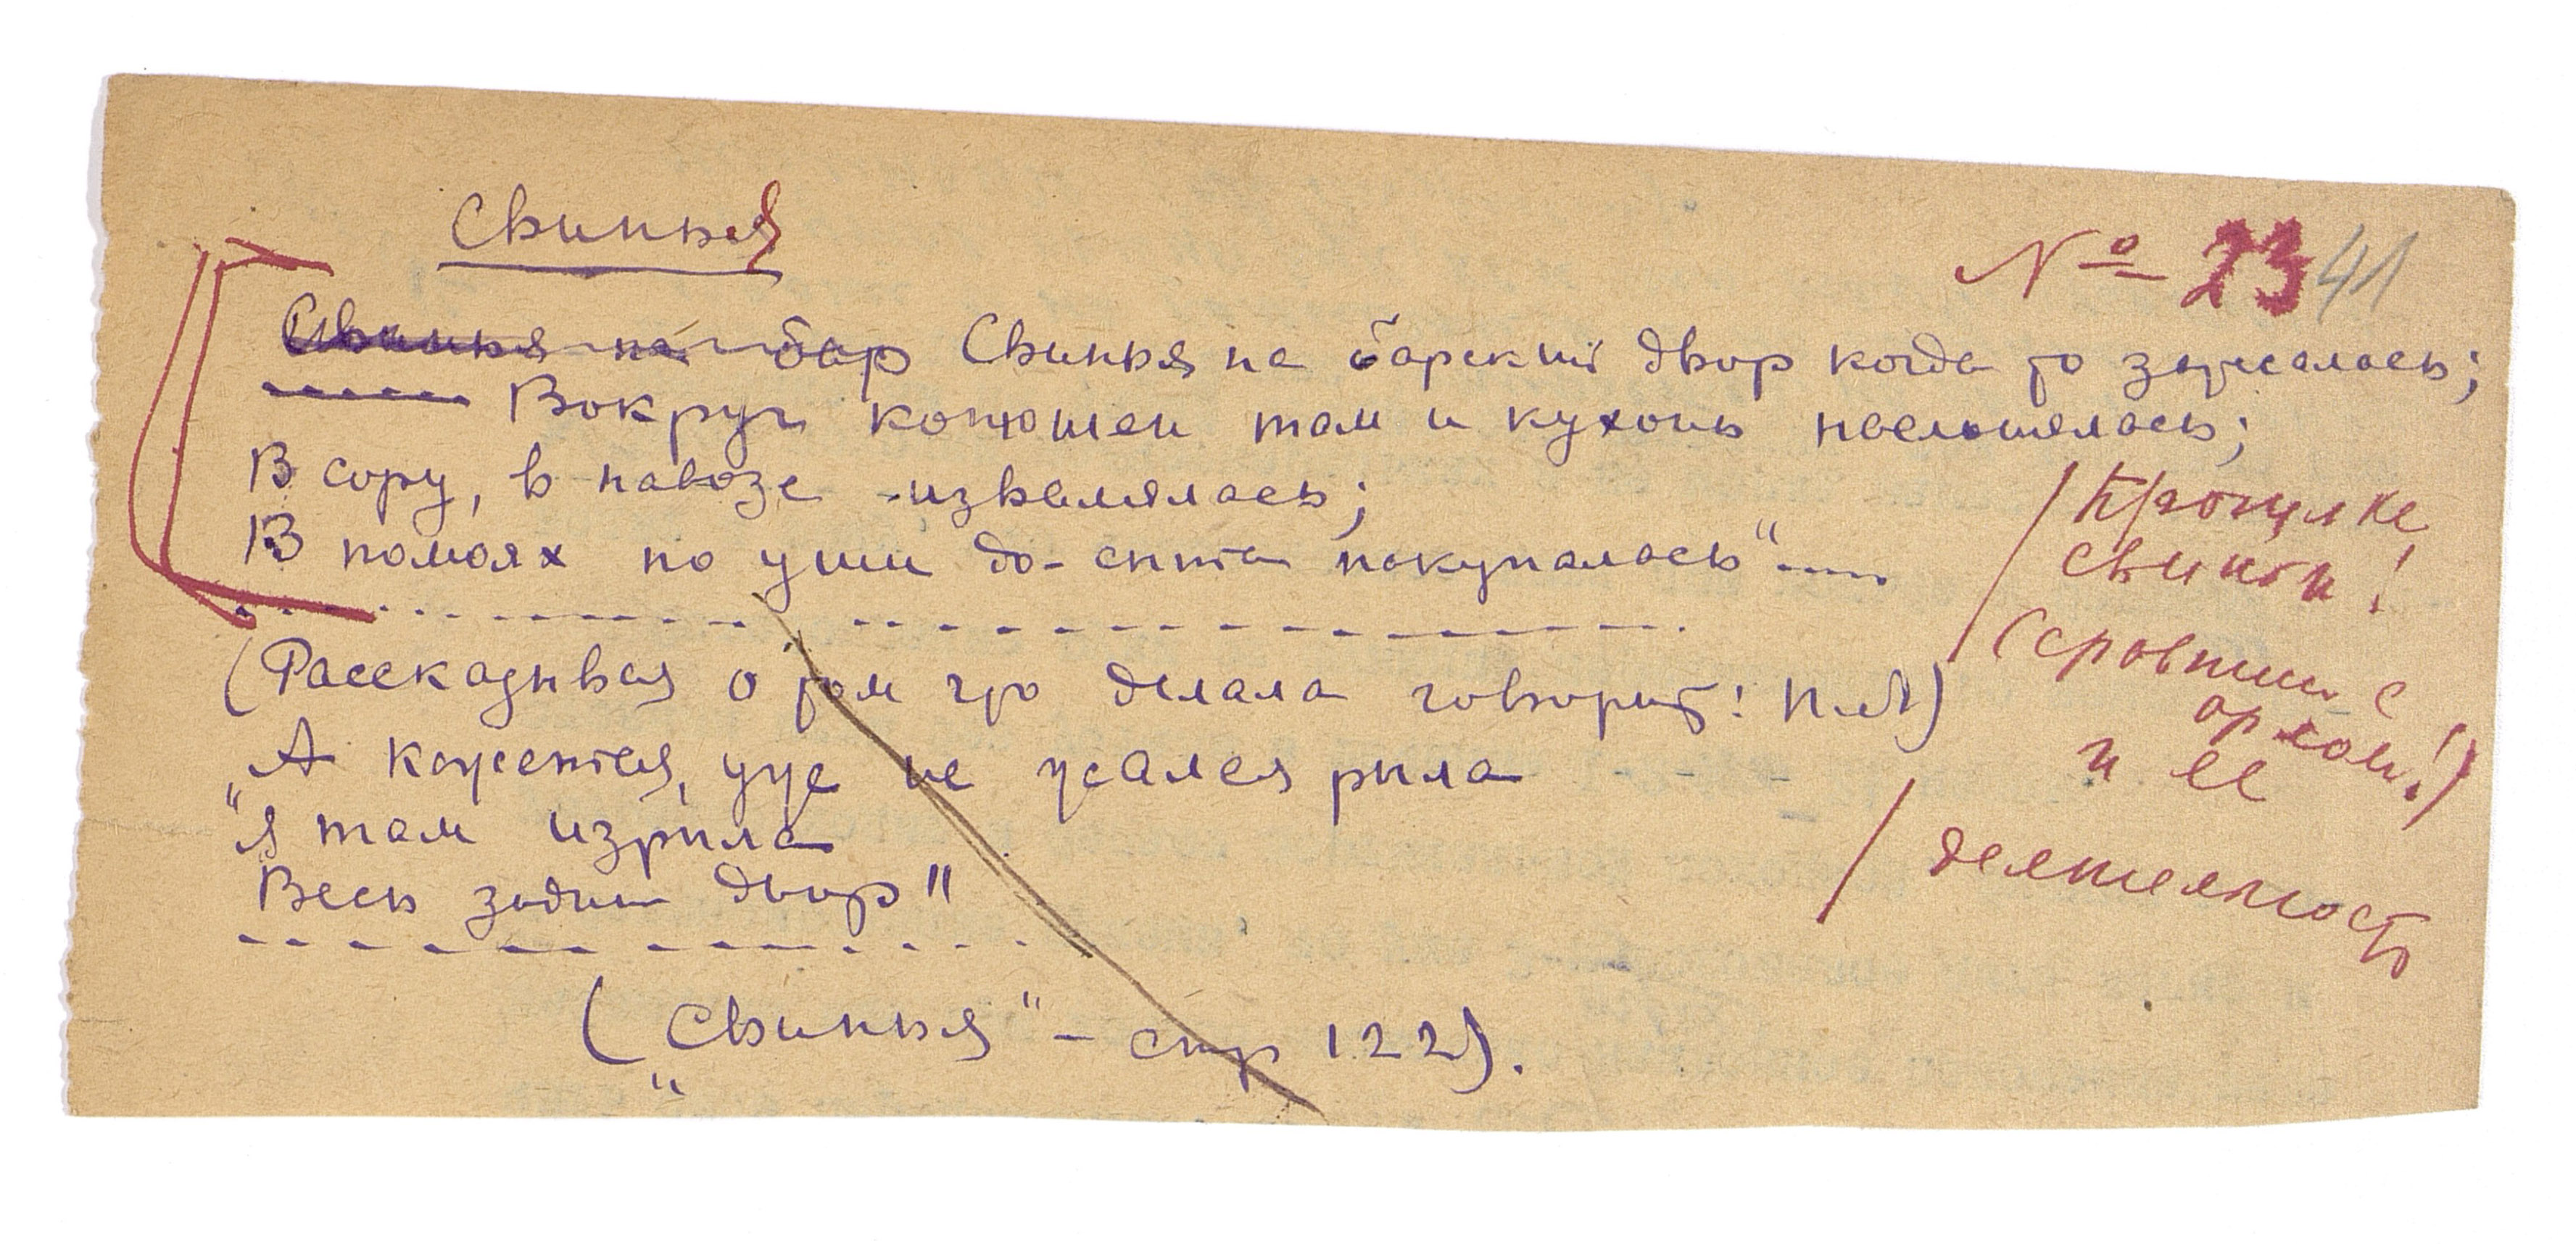 Свинья
№ 23 41
Свинья на бар Свинья на барский двор когда то затесалась;
Вокруг конюшен там и кухонь наслонялась;
В сору, в навозе извалялась;
В помоях по уши до-сыта накупалась"
(Рассказывая о том что делала говорит: Н.М)
"А кажется, уже не жалея рыла
"Я там изрыла
Весь задний двор"
("Свинья" – стр 122).
Прогулке
свиньи!
(сровним с
орлом!)
и ее
деятельность